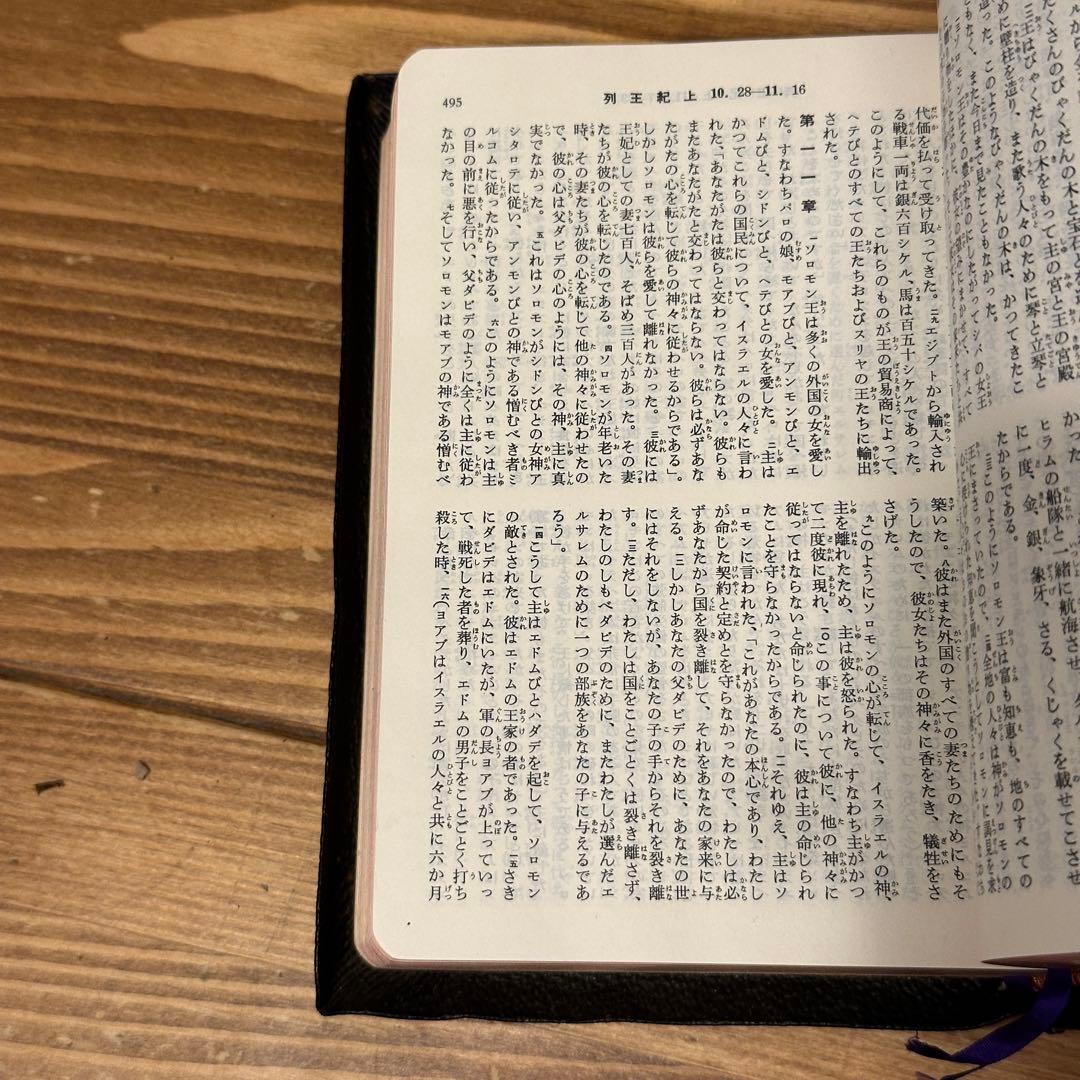 495
列王紀上 10. 28―11. 16
代価を払って受け取ってきた。二九エジプトから輸入され
る戦車一両は銀六百シケル、馬は百五十シケルであった。
このようにして、これらのものが王の貿易商によって、
ヘテびとのすべての王たちおよびスリヤの王たちに輸出
された。
第一一章 一ソロモン王は多くの外国の女を愛し
た。すなわちパロの娘、モアブびと、アンモンびと、エ
ドムびと、シドンびと、ヘテびとの女を愛した。二主は
かつてこれらの国民について、イスラエルの人々に言わ
れた、「あなたがたは彼らと交わってはならない。彼らも
またあなたがたと交わってはならない。彼らは必ずあな
たがたの心を転じて彼らの神々に従わせるからである」。
しかしソロモンは彼らを愛して離れなかった。三彼には
王妃としての妻七百人、そばめ三百人があった。その妻
たちが彼の心を転じたのである。四ソロモンが年老いた
時、その妻たちが彼の心を転じて他の神々に従わせたの
で、彼の心は父ダビデの心のようには、その神、主に真
実でなかった。五これはソロモンがシドンびとの女神ア
シタロテに従い、アンモンびとの神である憎むべき者ミ
ルコムに従ったからである。六このようにソロモンは主
の目の前に悪を行い、父ダビデのように全くは主に従わ
なかった。七そしてソロモンはモアブの神である憎むべ
築いた。八彼はまた外国のすべての妻たちのためにもそ
うしたので、彼女たちはその神々に香をたき、犠牲をさ
さげた。
九このようにソロモンの心が転じて、イスラエルの神、
主を離れたため、主は彼を怒られた。すなわち主がかつ
て二度彼に現れ、一〇この事について彼に、他の神々に
従ってはならないと命じられたのに、彼は主の命じられ
たことを守らなかったからである。一一それゆえ、主はソ
ロモンに言われた、「これがあなたの本心であり、わたし
が命じた契約と定めとを守らなかったので、わたしは必
ずあなたから国を裂き離して、それをあなたの家来に与
える。一二しかしあなたの父ダビデのために、あなたの世
にはそれをしないが、あなたの子の手からそれを裂き離
す。一三ただし、わたしは国をことごとくは裂き離さず、
わたしのしもべダビデのために、またわたしが選んだエ
ルサレムのために一つの部族をあなたの子に与えるであ
ろう」。
一四こうして主はエドムびとハダデを起して、ソロモン
の敵とされた。彼はエドムの王家の者であった。一五さき
にダビデはエドムにいたが、軍の長ヨアブが上っていっ
て、戦死した者を葬り、エドムの男子をことごとく打ち
殺した時、一六(ヨアブはイスラエルの人々と共に六か月